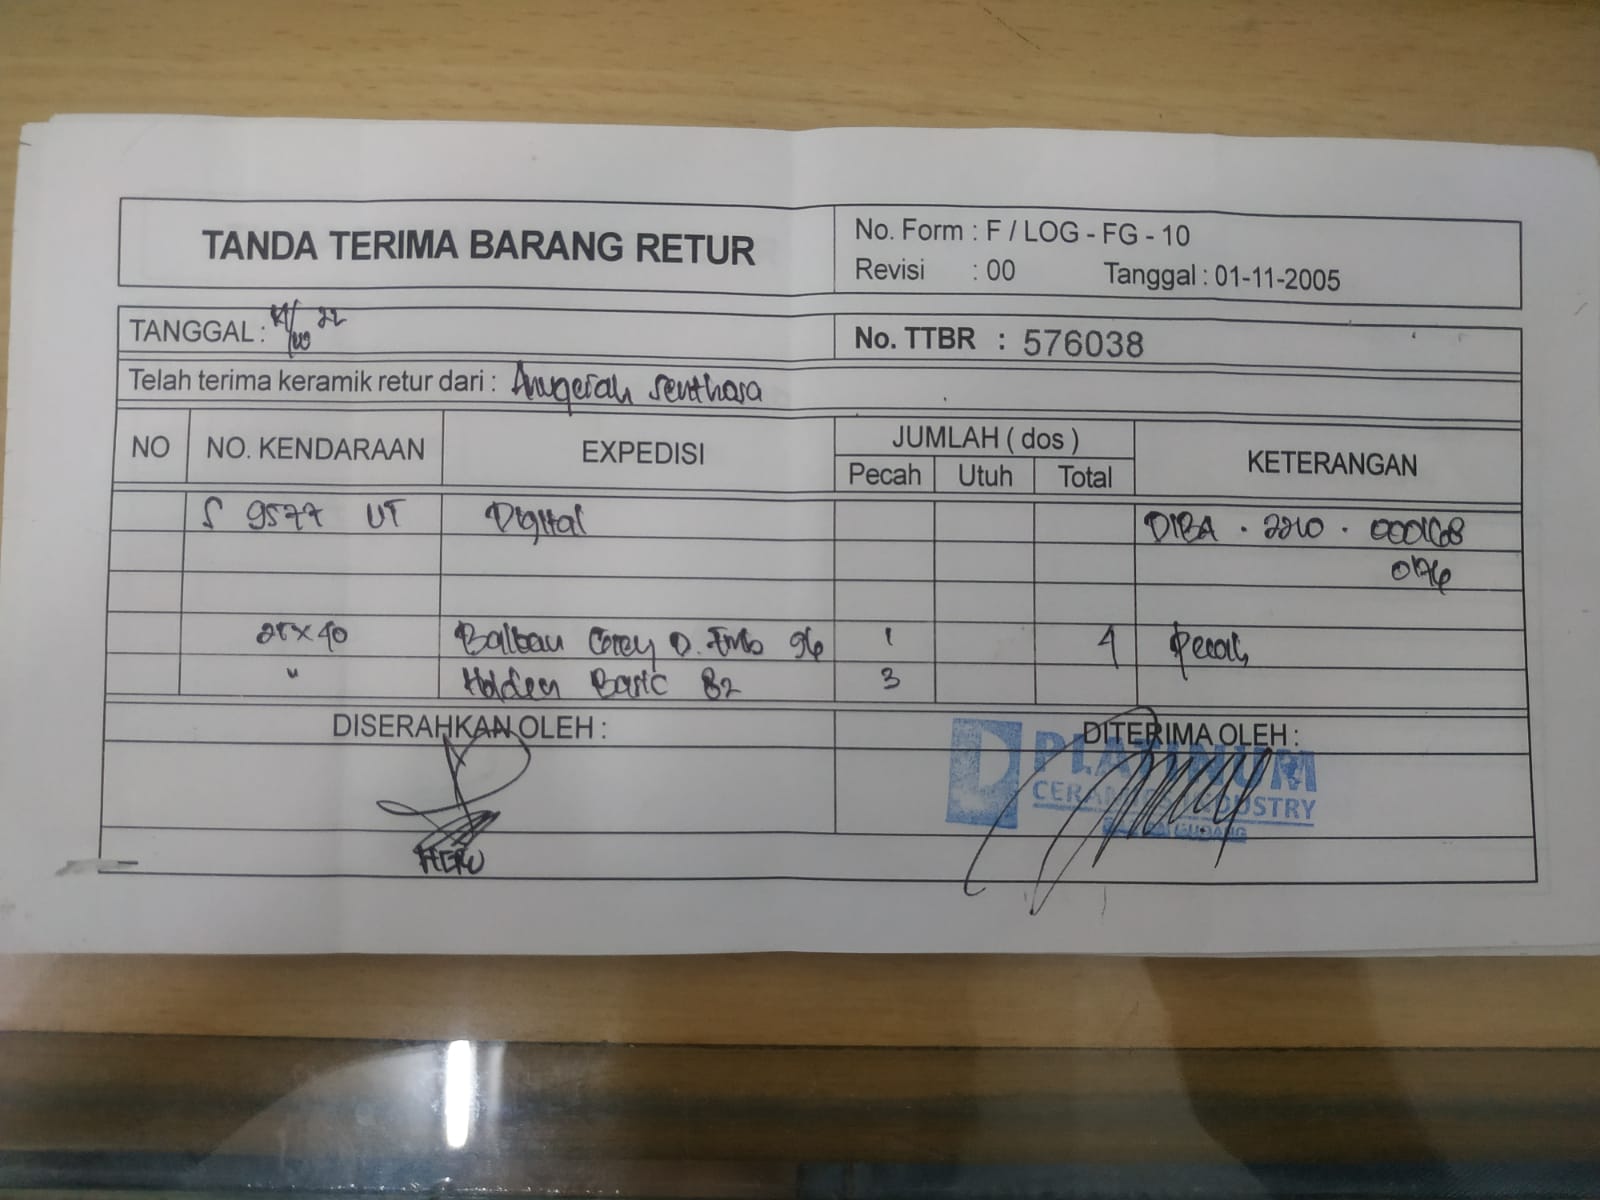 TANDA TERIMA BARANG RETUR
No. Form : F / LOG - FG - 10
Revisi : 00 Tanggal : 01-11-2005
TANGGAL : 22
No. TTBR : 576038
Telah terima keramik retur dari : Anugerah
NO NO. KENDARAAN EXPEDISI JUMLAH ( dos ) KETERANGAN
Pecah Utuh Total
S 9577 UT Digital DIBA . 2210 . 000168
0176
25x40 Balbau Grey D. Emb 96 1 4 Pecah
" Holden Basic 82 3
DISERAHKAN OLEH :
DITERIMA OLEH :
PLATINUM
CERAMICS INDUSTRY
GUDANG
HERU